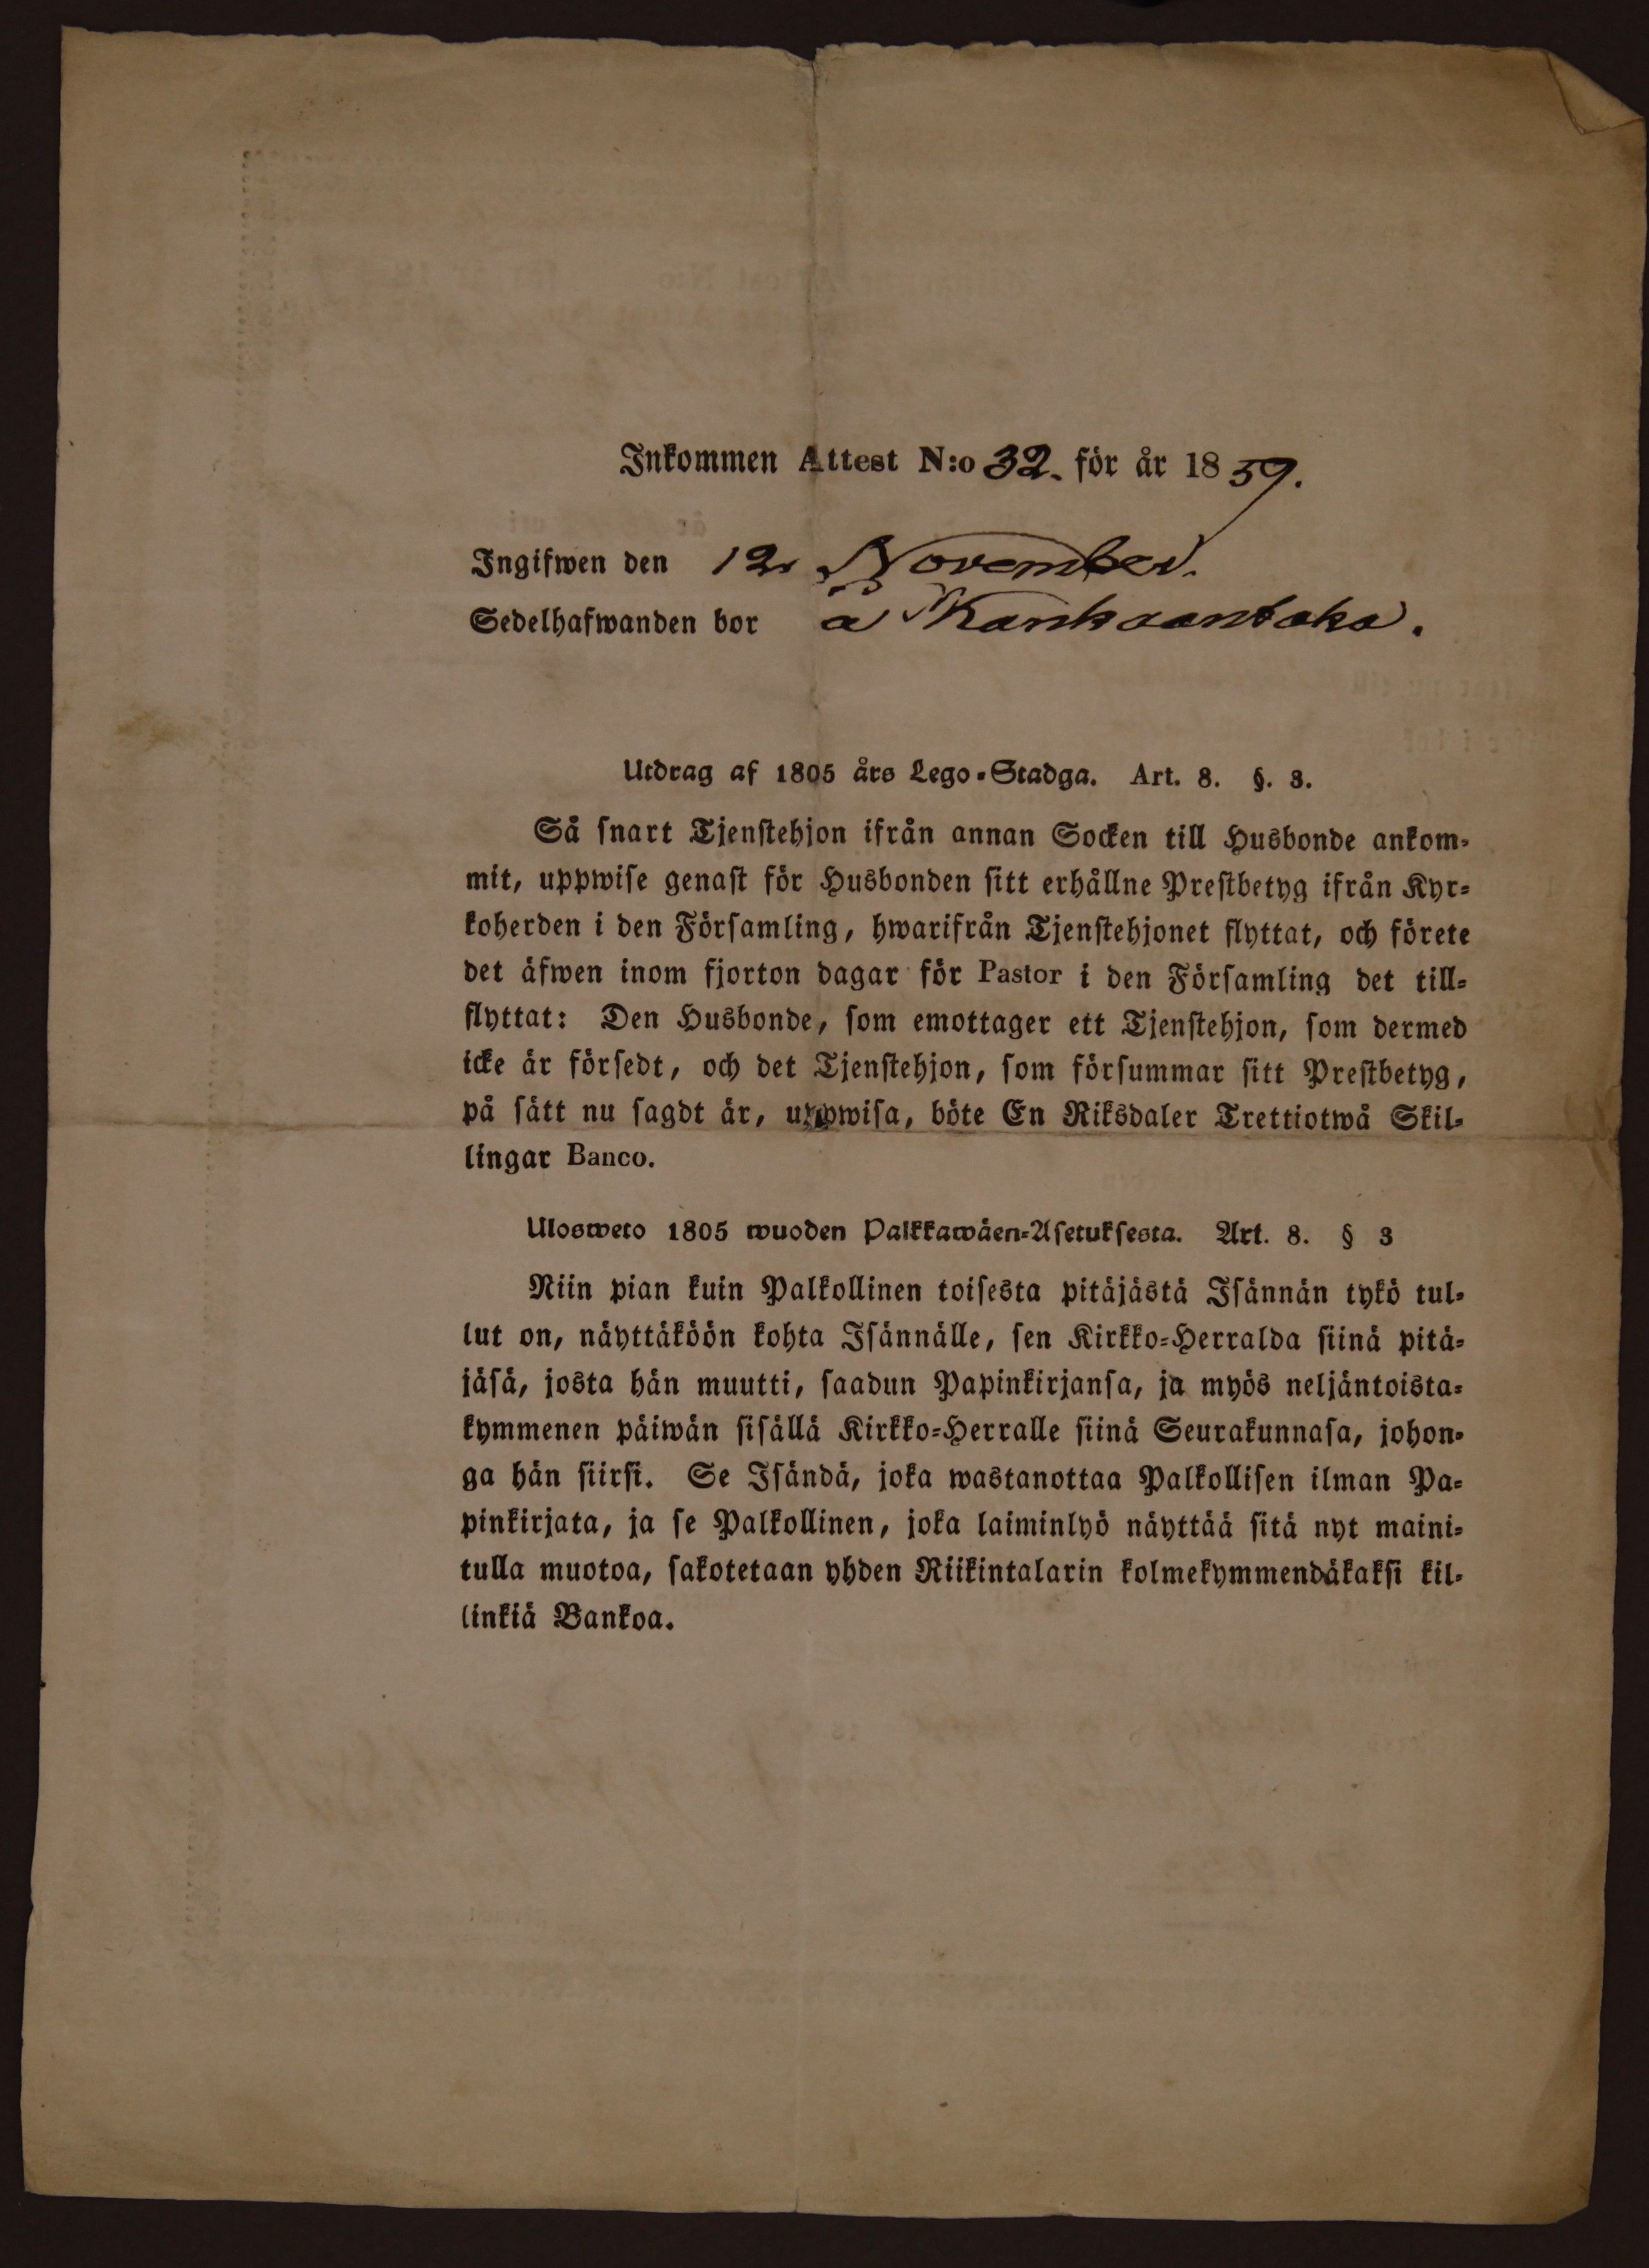 Inkommen Attest N:o 32. för år 1859.
Ingifwen den 12 November.
Sedelhafwanden bor å Kankaantaka.
Utdrag af 1805 års Lego-Stadga. Art. 8. §. 3.
Så snart Tjenstehjon ifrån annan Socken till Husbonde ankom-
mit, uppwise genast för Husbonden sitt erhållne Prestbetyg ifrån Kyr-
koherden i den Församling, hwarifrån Tjenstehjonet flyttat, och förete
det äfwen inom fjorton dagar för Pastor i den Församling det till-
flyttat: Den Husbonde, som emottager ett Tjenstehjon, som dermed
icke är försedt, och det Tjenstehjon, som försummar sitt Prestbetyg,
på sätt nu sagdt är, uppwisa, böte En Riksdaler Trettiotwå Skil-
lingar Banco.
Ulosweto 1805 wuoden Palkkawäen-Asetuksesta. Art. 8. § 3
Niin pian kuin Palkollinen toisesta pitäjästä Isännän tykö tul-
lut on, näyttäköön kohta Isännälle, sen Kirkko-Herralda siinä pitä-
jäsä, josta hän muutti, saadun Papinkirjansa, ja myös neljäntoista-
kymmenen päiwän sisällä Kirkko-Herralle siinä Seurakunnasa, johon-
ga hän siirsi. Se Isändä, joka wastanottaa Palkollisen ilman Pa-
pinkirjata, ja se Palkollinen, joka laiminlyö näyttää sitä nyt maini-
tulla muotoa, sakotetaan yhden Riikintalarin kolmekymmendäkaksi kil-
linkiä Bankoa.